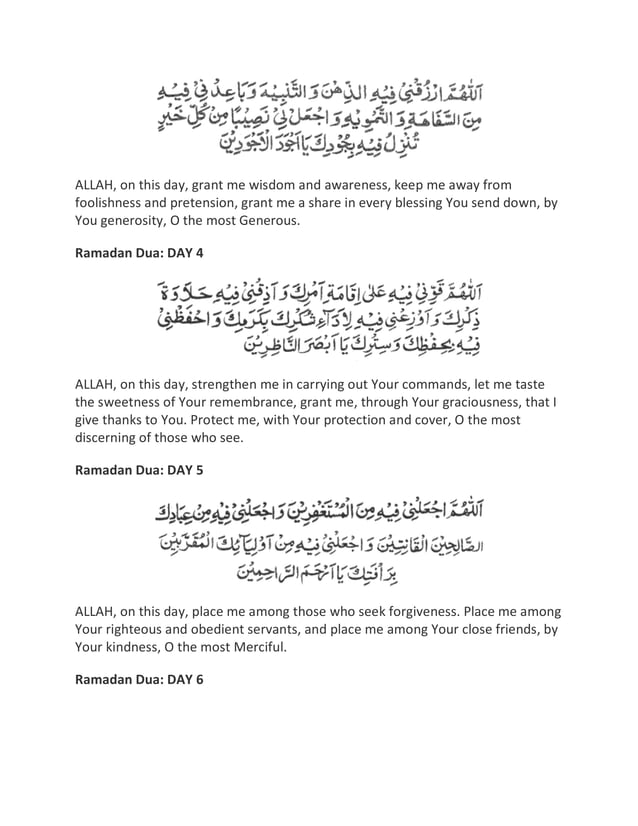 اَللّٰهُمَّ ارْزُقْنِيْ فِيْهِ الذِّهْنَ وَ التَّنْبِيْهَ وَ بَاعِدْنِيْ فِيْهِ
مِنَ السَّفَاهَةِ وَ التَّمْوِيْهِ وَ اجْعَلْ لِيْ نَصِيْبًا مِنْ كُلِّ خَيْرٍ
تُنْزِلُ فِيْهِ بِجُوْدِكَ يَا اَجْوَدَ الْاَجْوَدِيْنَ
ALLAH, on this day, grant me wisdom and awareness, keep me away from
foolishness and pretension, grant me a share in every blessing You send down, by
You generosity, O the most Generous.
Ramadan Dua: DAY 4
اَللّٰهُمَّ قَوِّنِيْ فِيْهِ عَلٰى اِقَامَةِ اَمْرِكَ وَ اَذِقْنِيْ فِيْهِ حَلَاوَةَ
ذِكْرِكَ وَ اَوْزِعْنِيْ فِيْهِ لِاَدَآءِ شُكْرِكَ بِكَرَمِكَ وَ احْفَظْنِيْ
فِيْهِ بِحِفْظِكَ وَ سِتْرِكَ يَا اَبْصَرَ النَّاظِرِيْنَ
ALLAH, on this day, strengthen me in carrying out Your commands, let me taste
the sweetness of Your remembrance, grant me, through Your graciousness, that I
give thanks to You. Protect me, with Your protection and cover, O the most
discerning of those who see.
Ramadan Dua: DAY 5
اَللّٰهُمَّ اجْعَلْنِيْ فِيْهِ مِنَ الْمُسْتَغْفِرِيْنَ وَ اجْعَلْنِيْ فِيْهِ مِنْ عِبَادِكَ
الصَّالِحِيْنَ الْقَانِتِيْنَ وَ اجْعَلْنِيْ فِيْهِ مِنْ اَوْلِيَآئِكَ الْمُقَرَّبِيْنَ
بِرَأْفَتِكَ يَا اَرْحَمَ الرَّاحِمِيْنَ
ALLAH, on this day, place me among those who seek forgiveness. Place me among
Your righteous and obedient servants, and place me among Your close friends, by
Your kindness, O the most Merciful.
Ramadan Dua: DAY 6